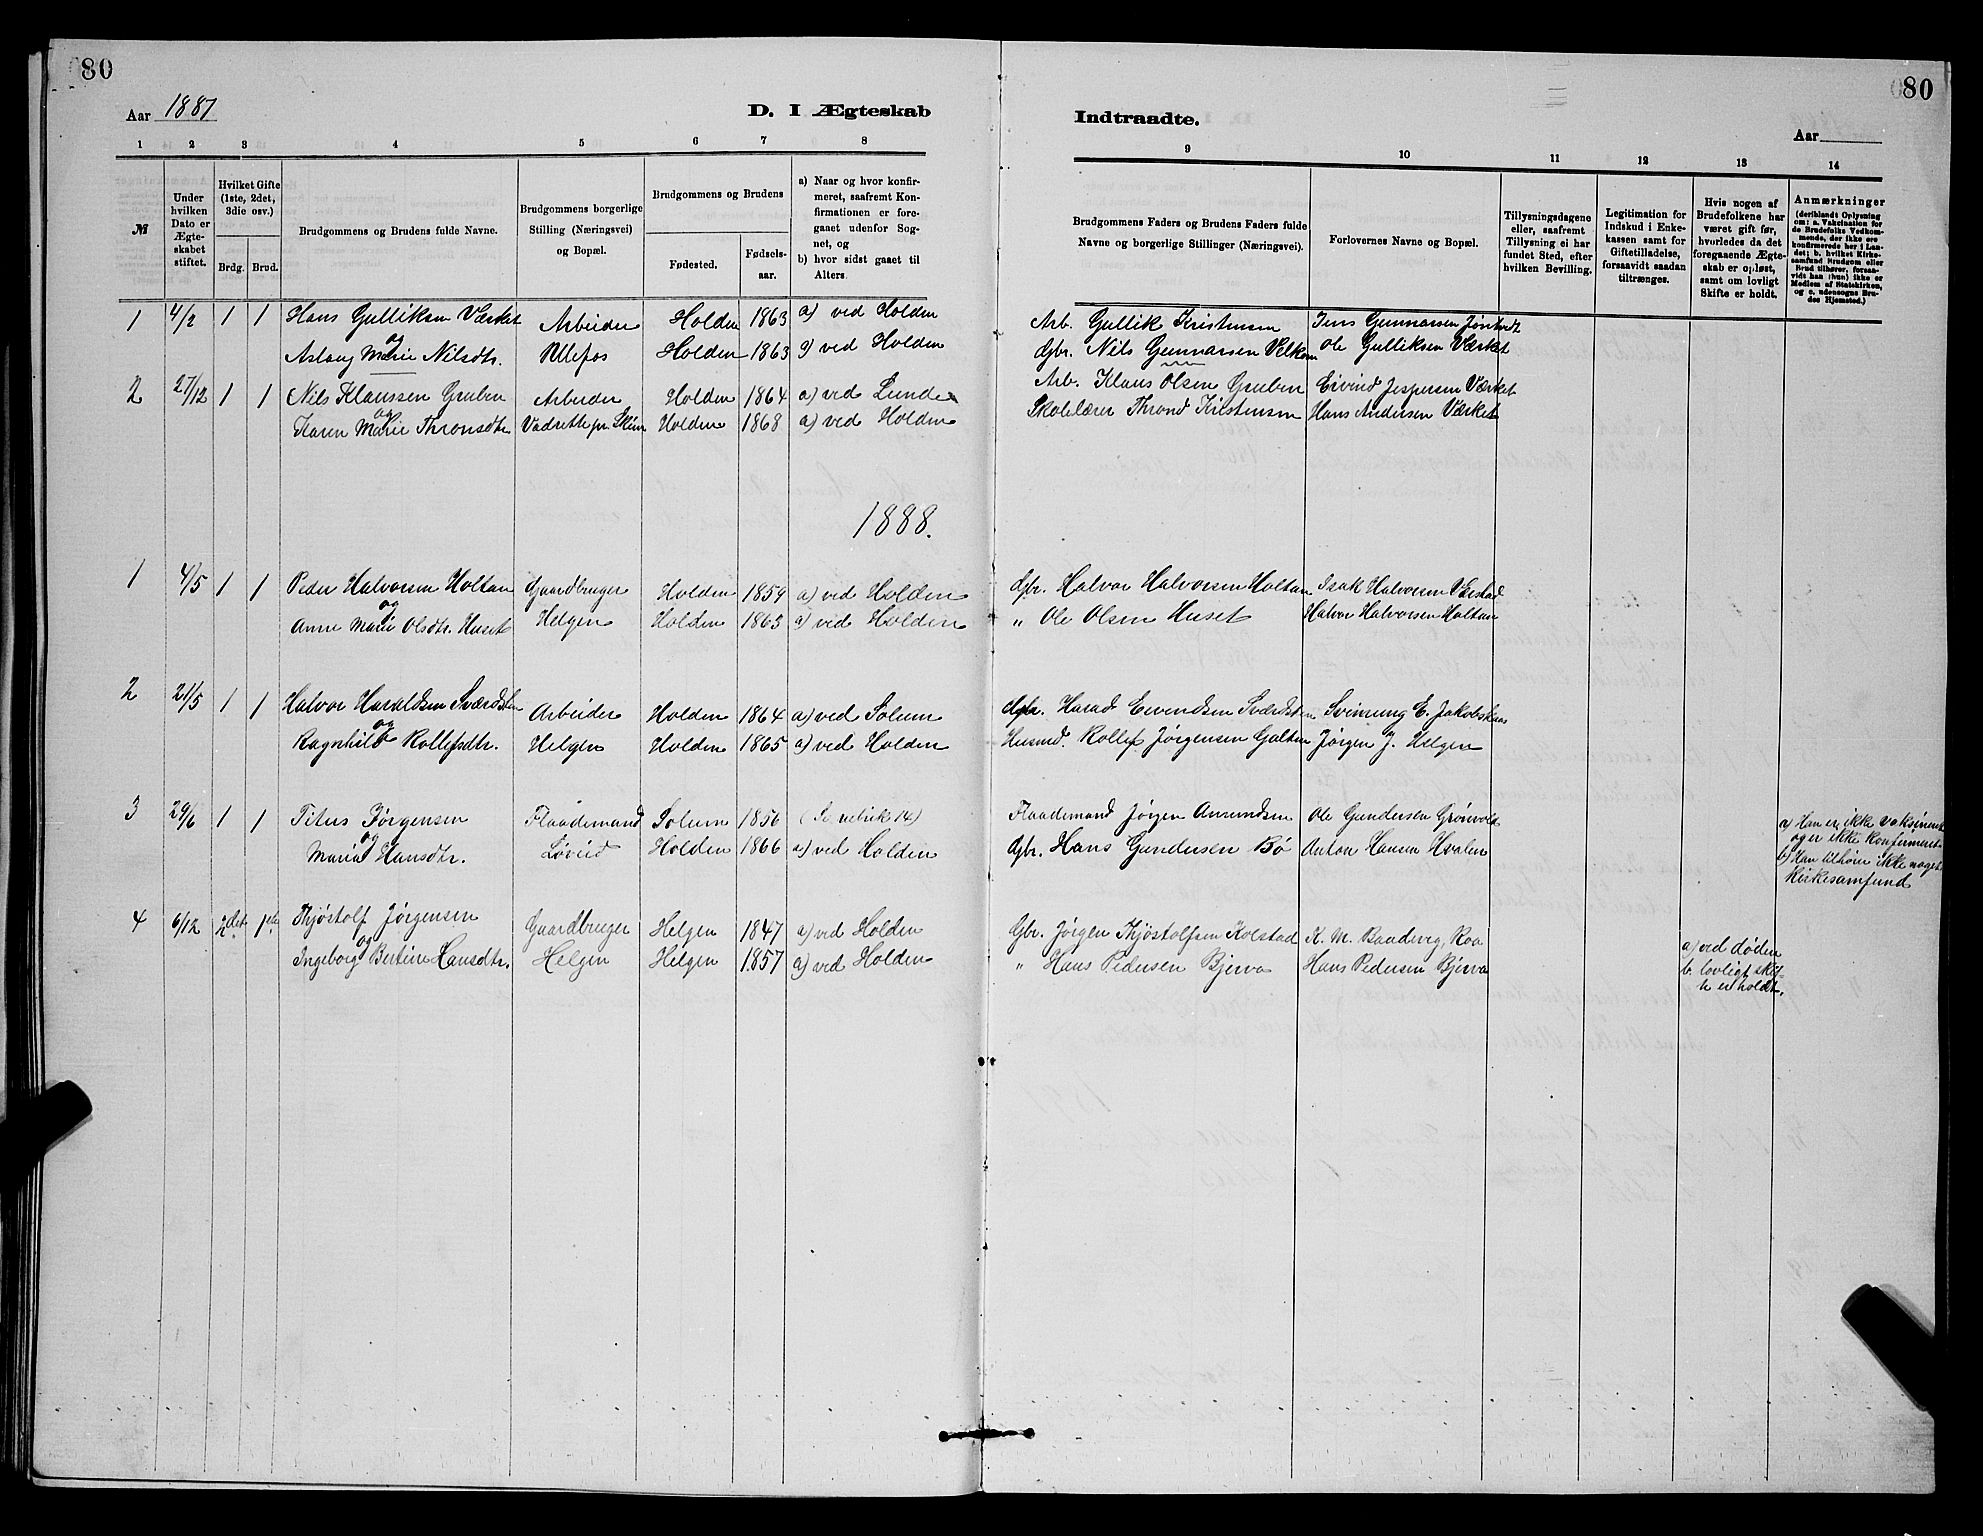 80
80
Aar 1887
D. I Ægteskab
Indtraadte.
Aar
1 2 3 4 5 6 7 8
9 10 11 12 13 14
№
Under hvilken Dato er Ægteskabet stiftet.
Hvilket Gifte (1ste, 2det, 3die osv.)
Brdg. Brud.
Brudgommens og Brudens fulde Navne.
Brudgommens borgerlige Stilling (Næringsvei) og Bopæl.
Brudgommens og Brudens
Fødested.
Fødselsaar.
a) Naar og hvor konfirmeret, saafremt Konfirmationen er foregaaet udenfor Sognet, og
b) hvor sidst gaaet til Alters.
Brudgommens Faders og Brudens Faders fulde Navne og borgerlige Stillinger (Næringsvei).
Forlovernes Navne og Bopæl.
Tillysningsdagene eller, saafremt Tillysning ei har fundet Sted, efter hvilken Bevilling.
Legitimation for Indskud i Enkekassen samt for Giftetilladelse, forsaavidt saadan tiltrænges.
Hvis nogen af Brudefolkene har været gift før, hvorledes da det foregaaende Ægteskab er opløst, samt om lovligt Skifte er holdt.
Anmærkninger
(deriblandt Oplysning om: a. Vakcination for de Brudefolks Vedkommende, der ikke ere konfirmerede her i Landet; b. hvilket Kirkesamfund Brudgom eller Brud tilhører, forsaavidt han (hun) ikke er Medlem af Statskirken, og c. udensogns Brudes Hjemsted.)
1 4/2 1 1 Hans Gulliksen Værket Arbeider Holden 1863 a) ved Holden Arb. Gullik Kristensen Jens Gunnarsen
og
Aslaug Marie Nilsdtr. Ullefos Holden 1863 a) ved Holden Gbr. Nils Gunnarsen Ole Gulliksen Værket
2 27/12 1 1 Nils Klaussen Gruben Arbeider Holden 1864 a) ved Lunde Arb. Klaus Olsen Gruben Eivind Jespersen Værket
og
Karen Marie Thronsdtr. pr. Skien Holden 1868 a) ved Holden Skolelærer Thrond Kristensen Hans Andersen Værket
1888.
1 4/5 1 1 Peder Halvorsen Holtan Gaardbruger Holden 1859 a) ved Holden Gbr. Halvor Halvorsen Holtan Isak Halvorsen
og
Anne Marie Olsdtr. Huset Helgen Holden 1863 a) ved Holden " Ole Olsen Huset Halvor Halvorsen Holtan
2 21/5 1 1 Halvor Haraldsen Arbeider Holden 1864 a) ved Solum Gbr. Harad Eivendsen Svinung E. Jakobskaas
og
Ragnhild Rollefsdtr. Helgen Holden 1865 a) ved Holden Husmd. Rollef Jørgensen Galtan Jørgen J. Helgen
3 29/6 1 1 Titus Jørgensen Flaademand Solum 1856 (Se rubrik 14) Flaademand Jørgen Amundsen Ole Gundersen Grønvold
og
Maria Hansdtr. Løveid Holden 1866 a) ved Holden Gbr. Hans Gundersen Bö Anton Hansen Hvalen
a) Han er ikke vaksineret
og er ikke konfirmeret
b) Han tilhører ikke noget
Kirkesamfund
4 6/12 2det 1ste Thjøstolf Jørgensen Gaardbruger Helgen 1847 a) ved Holden Gbr. Jørgen Thjøstolfsen Kolstad K. M. Baadsvig, Roa
og
Ingeborg Bertine Hansdtr. Helgen Helgen 1857 a) ved Holden " Hans Pedersen Bjerva Hans Pedersen Bjerva
a) ved døden
b. lovligt skif-
te er holdt.